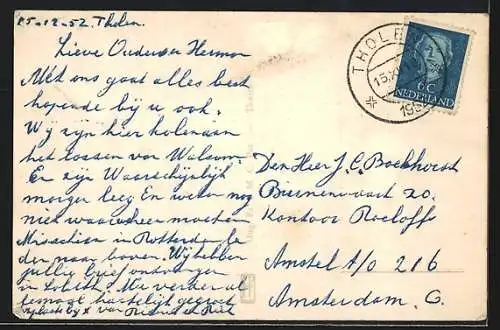 15-12-52. Tholen.
Lieve Ouders en Herman
Met ons gaat alles best
hopende bij u ook.
Wij zijn hier kolen aan
het lossen van Walsum.
En zijn Waarschijnlijk
morgen leeg En weten nog
niet waar weer moeten
Misschien in Rotterdam la
den naar boven. Wij hebben
jullie brief ontvangen
in Lobith. Nu verder al
hartelijk gegroet
van en Riet
THOLEN
1952
6 C
NEDERLAND
Den Heer J. C. Boekhorst
Binnenvaart 20.
Kantoor Roeloffs
Amstel t/o 216
Amsterdam. C.